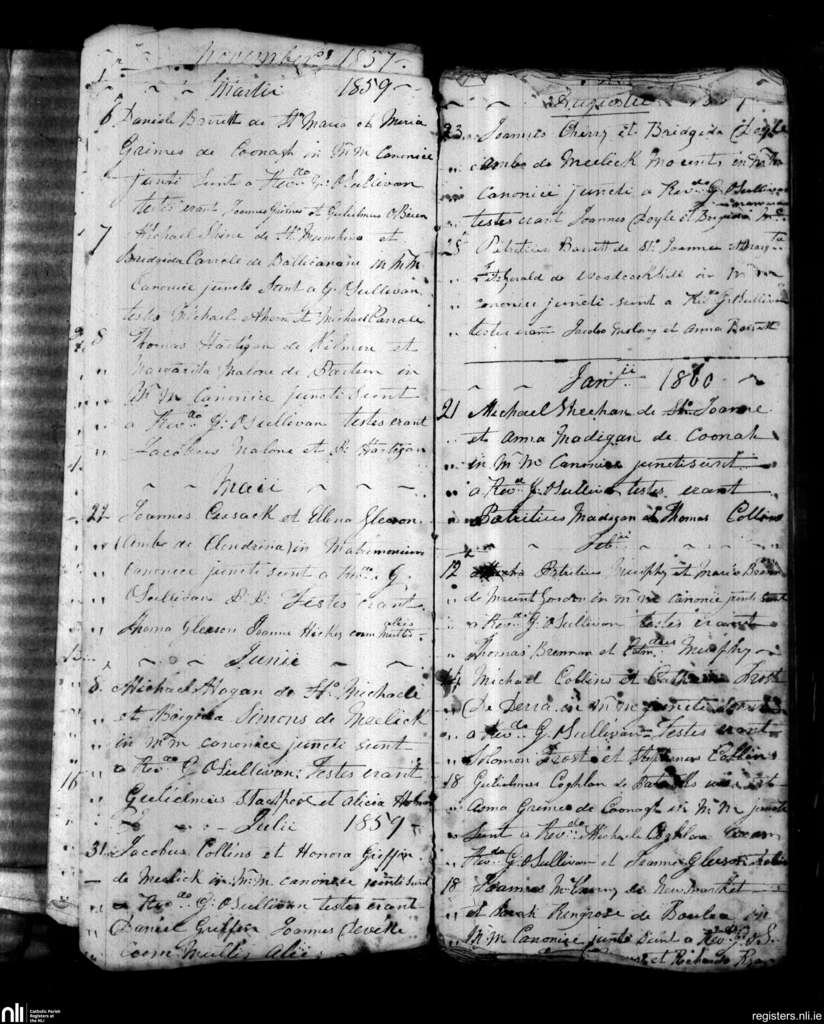 Novembris 1857
Martii 1859
6 Daniele Barrett de Sta Maria et Maria
Grimes de Coonagh in Mm Canonice
juncti Sunt a Revdo G. O Sullivan
testes erant Joannes Grimes et Gulielmus O Brien
7 Michael Shine de St Munchins et
Bridgida Carrole de Ballicanain in Mm
Canonice juncti Sunt a G. O Sullivan
testes Michael Ahern et Michael Carrole
8 Thomas Hartigan de Kilmore et
Margarita Malone de in
Mm Canonice juncti Sunt
a Revdo G. O Sullivan testes erant
Jacobus Malone et Hartigan
Maii
27 Joannes Cusack et Ellena Gleeson
(Ambo de Clondrina) in Matrimonium
Canonice juncti sunt a Revdo G.
O Sullivan P.P. Testes erant
Thoma Gleeson Joanne Hickey cum multis aliis
Junii
8 Michael Hogan de Sto Michaele
et Brigida Simons de Meelick
in Mm canonice juncti sunt
a Revdo G. O Sullivan: Testes erant
Gulielmus Stackpool et Alicia
16
Julii 1859
31 Jacobus Collins et Honora Griffin
de Meelick in Mm canonice juncti sunt
a Revdo G. O Sullivan testes erant
Daniel Griffin Joannes
Coom Multis Alii
Augustii
23 Joannes Cherry et Bridgida Doyle
ambo de Meelick Mount in Mm
Canonice juncti a Revdo G. O Sullivan
testes erant Joannes Doyle et Brigida
25 Patritius Barrett de St. Joanne et
Fitzgerald de Woodcockhill in Mm
canonice juncti sunt a Revdo G. O Sullivan
testes erant Jacobo et Anna Barrett
Janii 1860
21 Michael Sheehan de St. Joanne
et Anna Madigan de Coonah
in Mm Canonice juncti sunt
a Revdo G. O Sullivan testes erant
Patritius Madigan et Thomas Collins
Febii
12 Patritius Murphy et Maria
de Mount Gordon in Mm canonice juncti sunt
a Revdo G. O Sullivan testes erant
Thomas Brennan et Murphy
14 Michael Collins et Catherine Frost
De Serra in Mm juncti
a Revdo G. O Sullivan Testes erant
Solomon Frost et Stephenus Collins
18 Gulielmus Coghlan de et
Anna Grimes de Coonagh in Mm juncti
Sunt a Revdo Michaele Coghlan
Revdo G. O Sullivan et Joanne Gleeson
18 Joannes de Newmarket
et Sarah Ringrose de in
Mm Canonice juncti Sunt a Rev. G. O S.
et Richardo
nli
Catholic Parish
Registers at
the NLI
registers.nli.ie